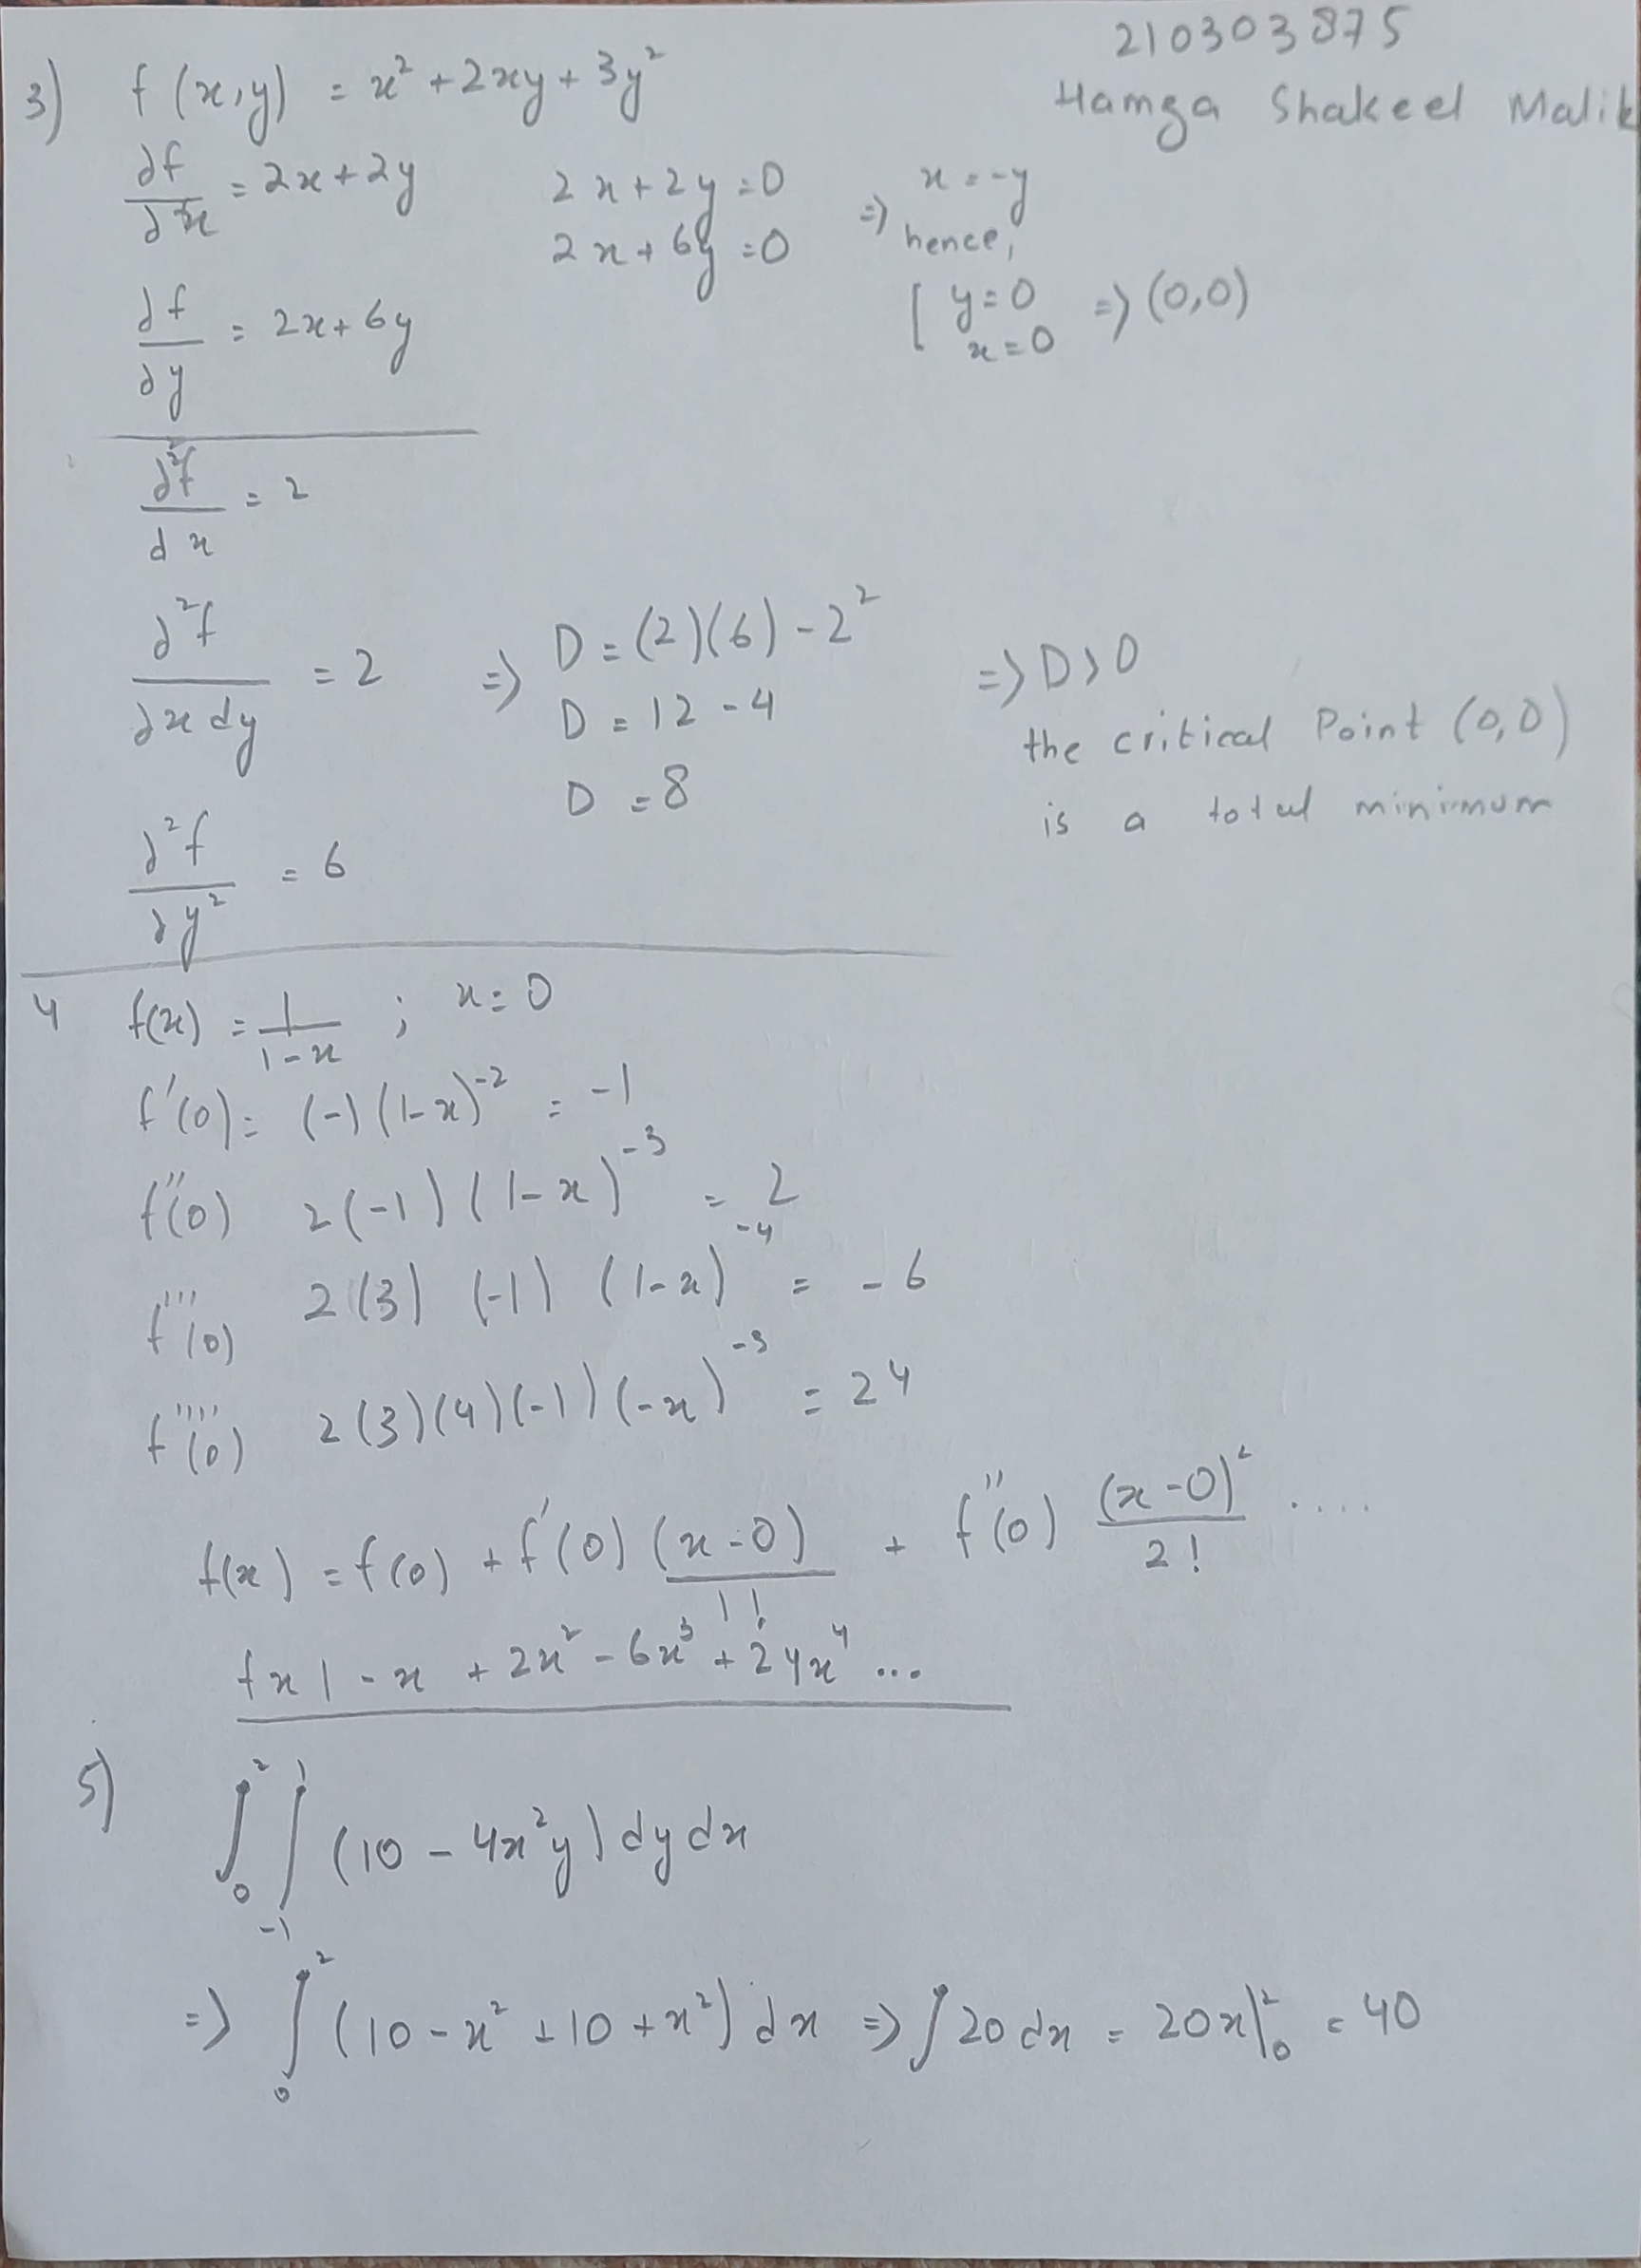 210303875
Hamza Shakeel Malik
3) f(x,y) = x² + 2xy + 3y²
∂f/∂x = 2x+2y    2x+2y=0    => x=-y
2x+6y=0    hence,
∂f/∂y = 2x+6y    [ y=0 x=0 => (0,0)
∂²f/dx = 2
∂²f/∂xdy = 2    => D=(2)(6)-2²    => D>0
D = 12-4    the critical Point (0,0)
D = 8    is a total minimum
∂²f/∂y² = 6
4 f(x) = 1/(1-x) ; x=0
f'(0)= (-)(1-x)⁻² = -1
f''(0) 2(-1)(1-x)⁻³ = 2
f'''(0) 2(3)(-1)(1-x)⁻⁴ = -6
f''''(0) 2(3)(4)(-1)(-x)⁻³ = 24
f(x) = f(0) + f'(0) (x-0)/1! + f''(0) (x-0)²/2! ....
fx1-x + 2x² - 6x³ + 24x⁴ ...
5) ∫₀² ∫₋₁¹ (10 - 4x²y) dy dx
=> ∫₀² (10-x²+10+x²) dx => ∫20dx = 20x|₀² = 40